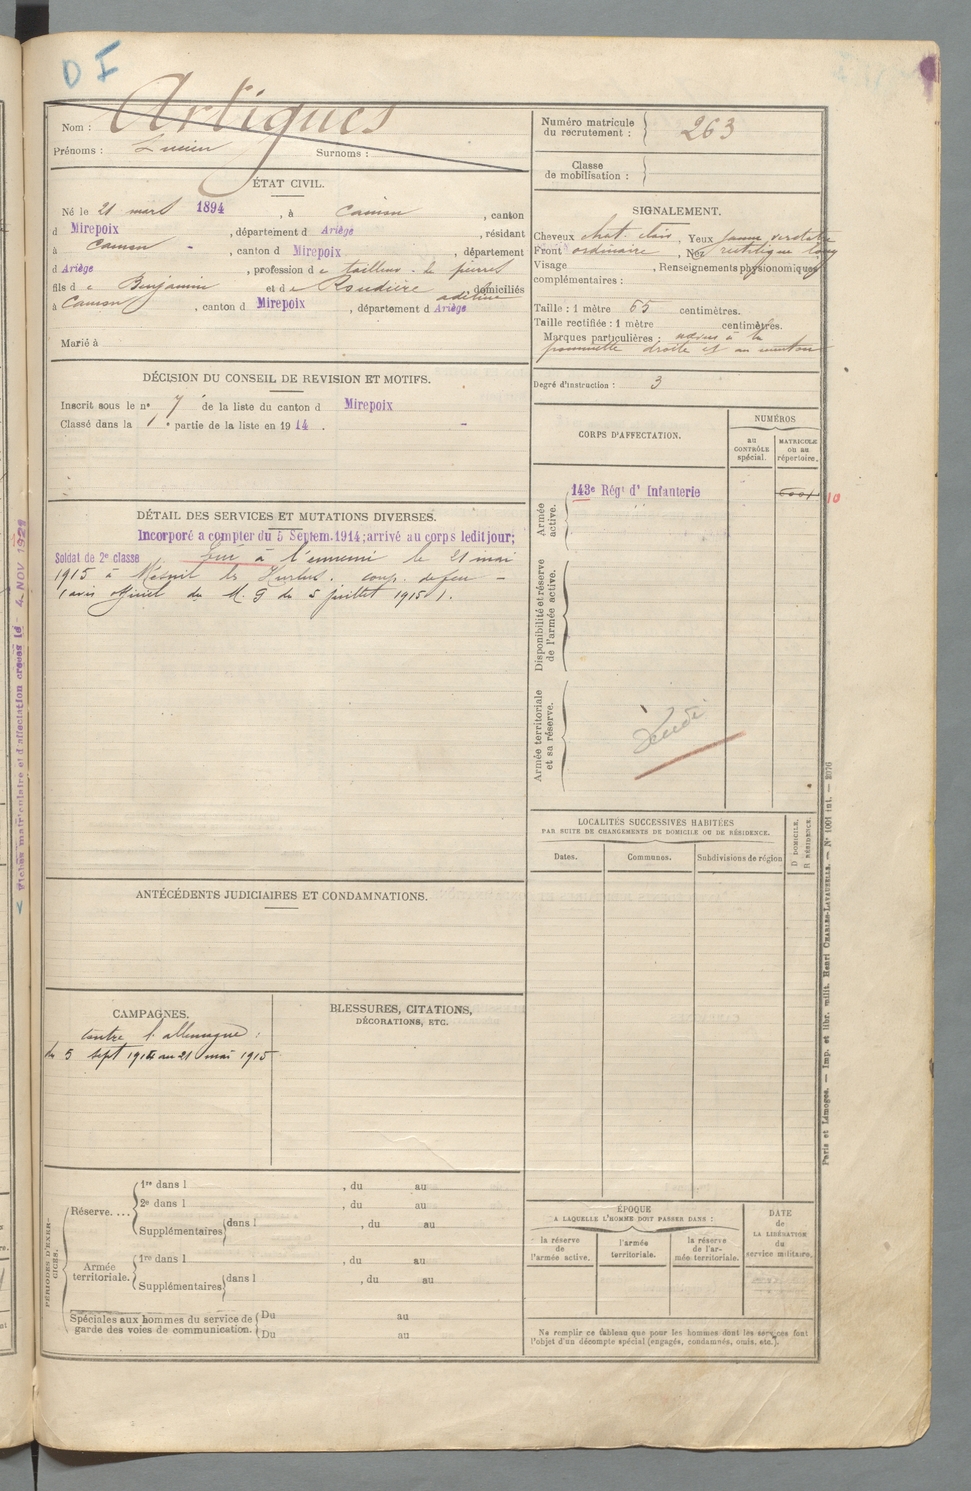 D I
Nom : Artigues
Prénoms : Lucien Surnoms :
Numéro matricule
du recrutement : 263
Classe
de mobilisation :
ÉTAT CIVIL.
Né le 21 mars 1894, à Camon, canton
d Mirepoix, département d Ariège, résidant
à Camon - , canton d Mirepoix, département
d Ariège, profession de tailleur de pierres
fils de Benjamin et de Roudière adeline domiciliés
à Camon, canton d Mirepoix, département d Ariège
Marié à
SIGNALEMENT.
Cheveux chat. clair, Yeux jaune verdatre
Front ordinaire, Nez rectiligne long
Visage , Renseignements physionomiques
complémentaires :
Taille : 1 mètre 65 centimètres.
Taille rectifiée : 1 mètre centimètres.
Marques particulières : à la
pommette droite et au menton
Degré d'instruction : 3
DÉCISION DU CONSEIL DE REVISION ET MOTIFS.
Inscrit sous le n° 7 de la liste du canton d Mirepoix
Classé dans la 1e partie de la liste en 1914. -
CORPS D'AFFECTATION.
NUMÉROS
au
CONTRÔLE
spécial.
MATRICULE
ou au
répertoire.
Armée
active.
143e Régt d' Infanterie
10
Disponibilité et réserve
de l'armée active.
Armée territoriale
et sa réserve.
DÉTAIL DES SERVICES ET MUTATIONS DIVERSES.
Incorporé à compter du 5 Septem. 1914; arrivé au corps ledit jour;
Soldat de 2e classe Tué à l'ennemi le 21 mai
1915 à Mesnil les Hurlus. coup de feu -
(avis officiel du M. G du 5 juillet 1915).
LOCALITÉS SUCCESSIVES HABITÉES
PAR SUITE DE CHANGEMENTS DE DOMICILE OU DE RÉSIDENCE.
Dates.
Communes.
Subdivisions de région
D DOMICILE.
R RÉSIDENCE.
ANTÉCÉDENTS JUDICIAIRES ET CONDAMNATIONS.
CAMPAGNES.
contre l'allemagne :
du 5 sept 1914 au 21 mai 1915
BLESSURES, CITATIONS,
DÉCORATIONS, ETC.
PÉRIODES D'EXER-
CICES.
Réserve....
1re dans l , du au
2e dans l , du au
Supplémentaires dans l , du au
Armée
territoriale.
1re dans l , du au
Supplémentaires dans l , du au
Spéciales aux hommes du service de
garde des voies de communication.
Du au
Du au
ÉPOQUE
A LAQUELLE L'HOMME DOIT PASSER DANS :
la réserve
de
l'armée active.
l'armée
territoriale.
la réserve
de l'ar-
mée territoriale.
DATE
de
LA LIBÉRATION
du
service militaire.
Ne remplir ce tableau que pour les hommes dont les services font
l'objet d'un décompte spécial (engagés, condamnés, omis, etc.).
Paris et Limoges. — Imp. et libr. milit. Henri CHARLES-LAVAUZELLE. — N° 1001 int. — 2076
Fiches matriculaire et d'affectation créées le 4 NOV 1929